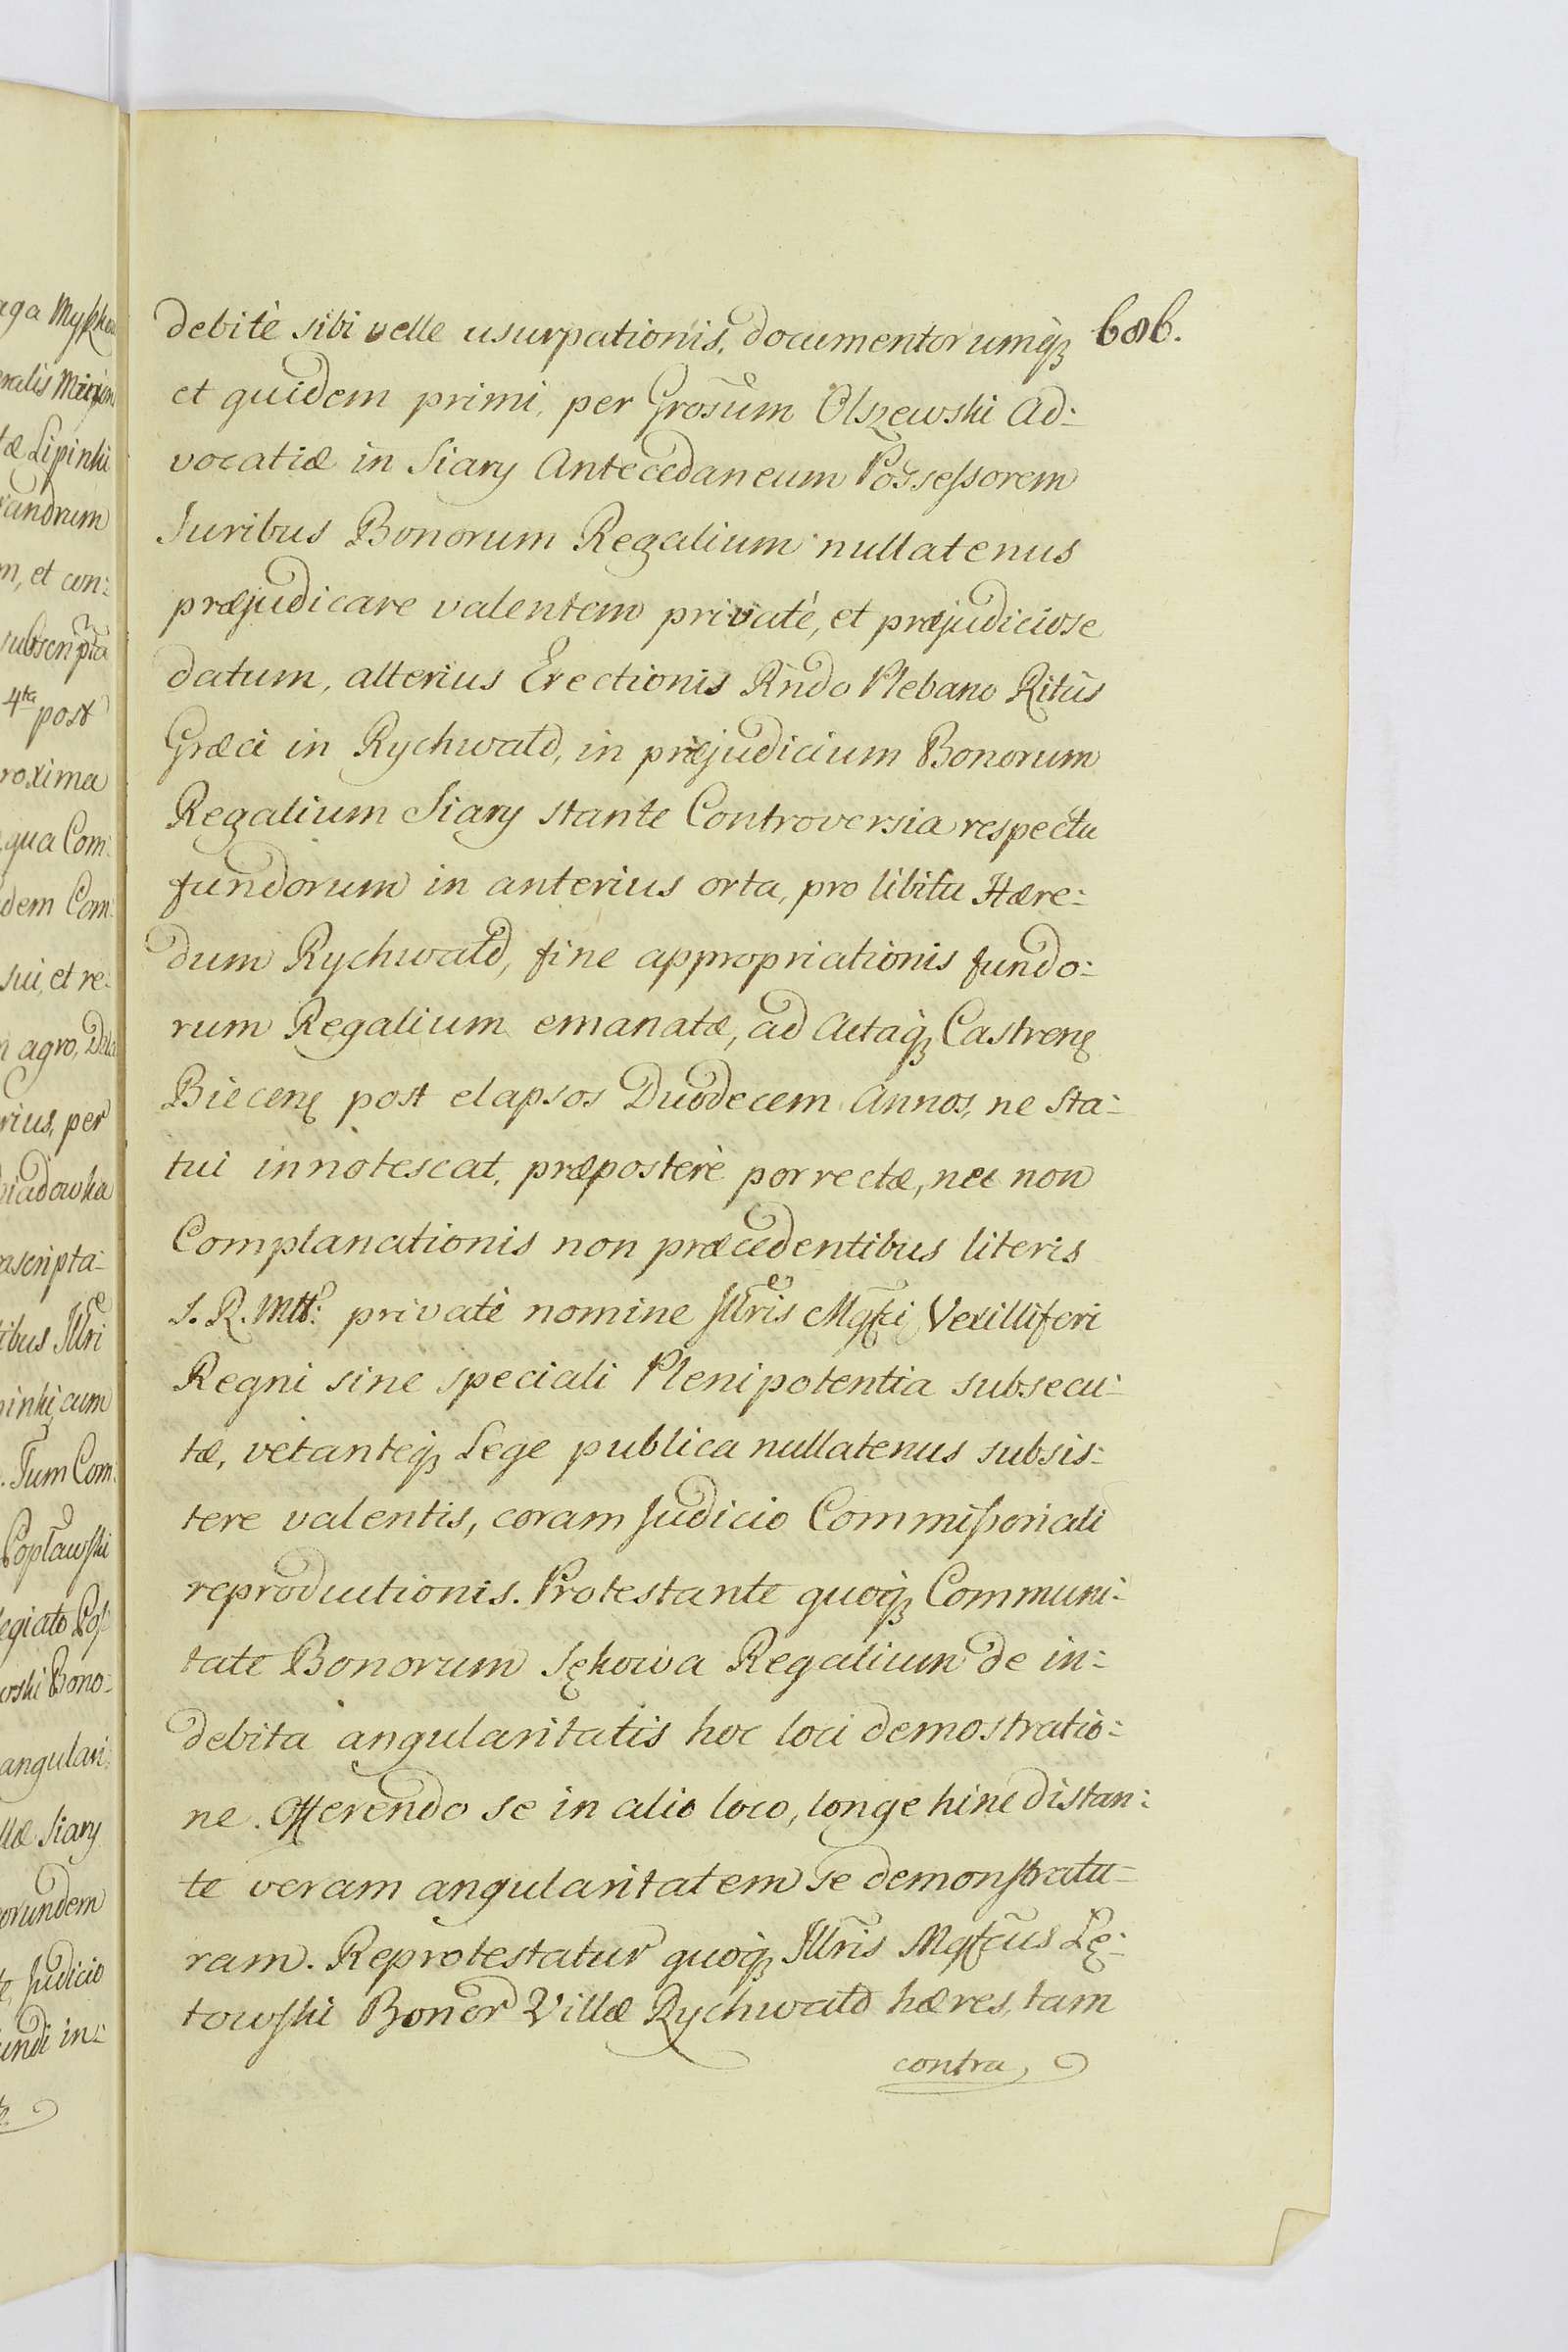 debitè sibi velle usurpationis, documentorumqꝫ 686.
et quidem primi, per Grosum Olszewski Ad:
vocatiæ in Siary Antecedaneum Possessorem
Juribus Bonorum Regalium nullatenus
præjudicare valentem privatè, et præjudiciose
datum, alterius Erectionis Rndo Plebano Ritûs
Græci in Rychwald, in præjudicium Bonorum
Regalium Siary stante Controversia respectu
fundorum in anterius orta, pro libitu Hære:
dum Rychwald, fine appropriationis fundo:
rum Regalium emanatæ, ad Actaqꝫ Castrenꝭ
Biecenꝭ post elapsos Duodecem Annos, ne sta:
tui innotescat, præposterè porrectæ, nec non
Complanationis non præcedentibus literis
S. R. Mtt: privatè nomine Jllris Mgfci Vexilliferi
Regni sine speciali Plenipotentia subsecu:
tæ, vetanteqꝫ Lege publica nullatenus subsis:
tere valentis, coram Judicio Commissoriali
reproductionis. Protestante quoqꝫ Communi:
tate Bonorum Sękowa Regalium de in:
debita angularitatis hoc loci demostratio:
ne. Offerendo se in alio loco, longe hinc distan:
te veram angularitatem se demonstratu:
ram. Reprotestatur quoqꝫ Jllris Mgfcus Łę:
towski Bonor Villæ Rychwald hæres, tam
contra
aga Myszko
eralis
æ Lipinski
andrum
m, et con:
subscripta
4ta post
roxima
qua Com:
dem Com:
sui, et re:
agro,
rius, per
iadowka
ascripta:
ibus Jllri
inski cum
. Tum Com:
Popławski
egiato Pos
wski Bono:
angulari:
llæ Siary
orundem
e, Judicio
undi in: